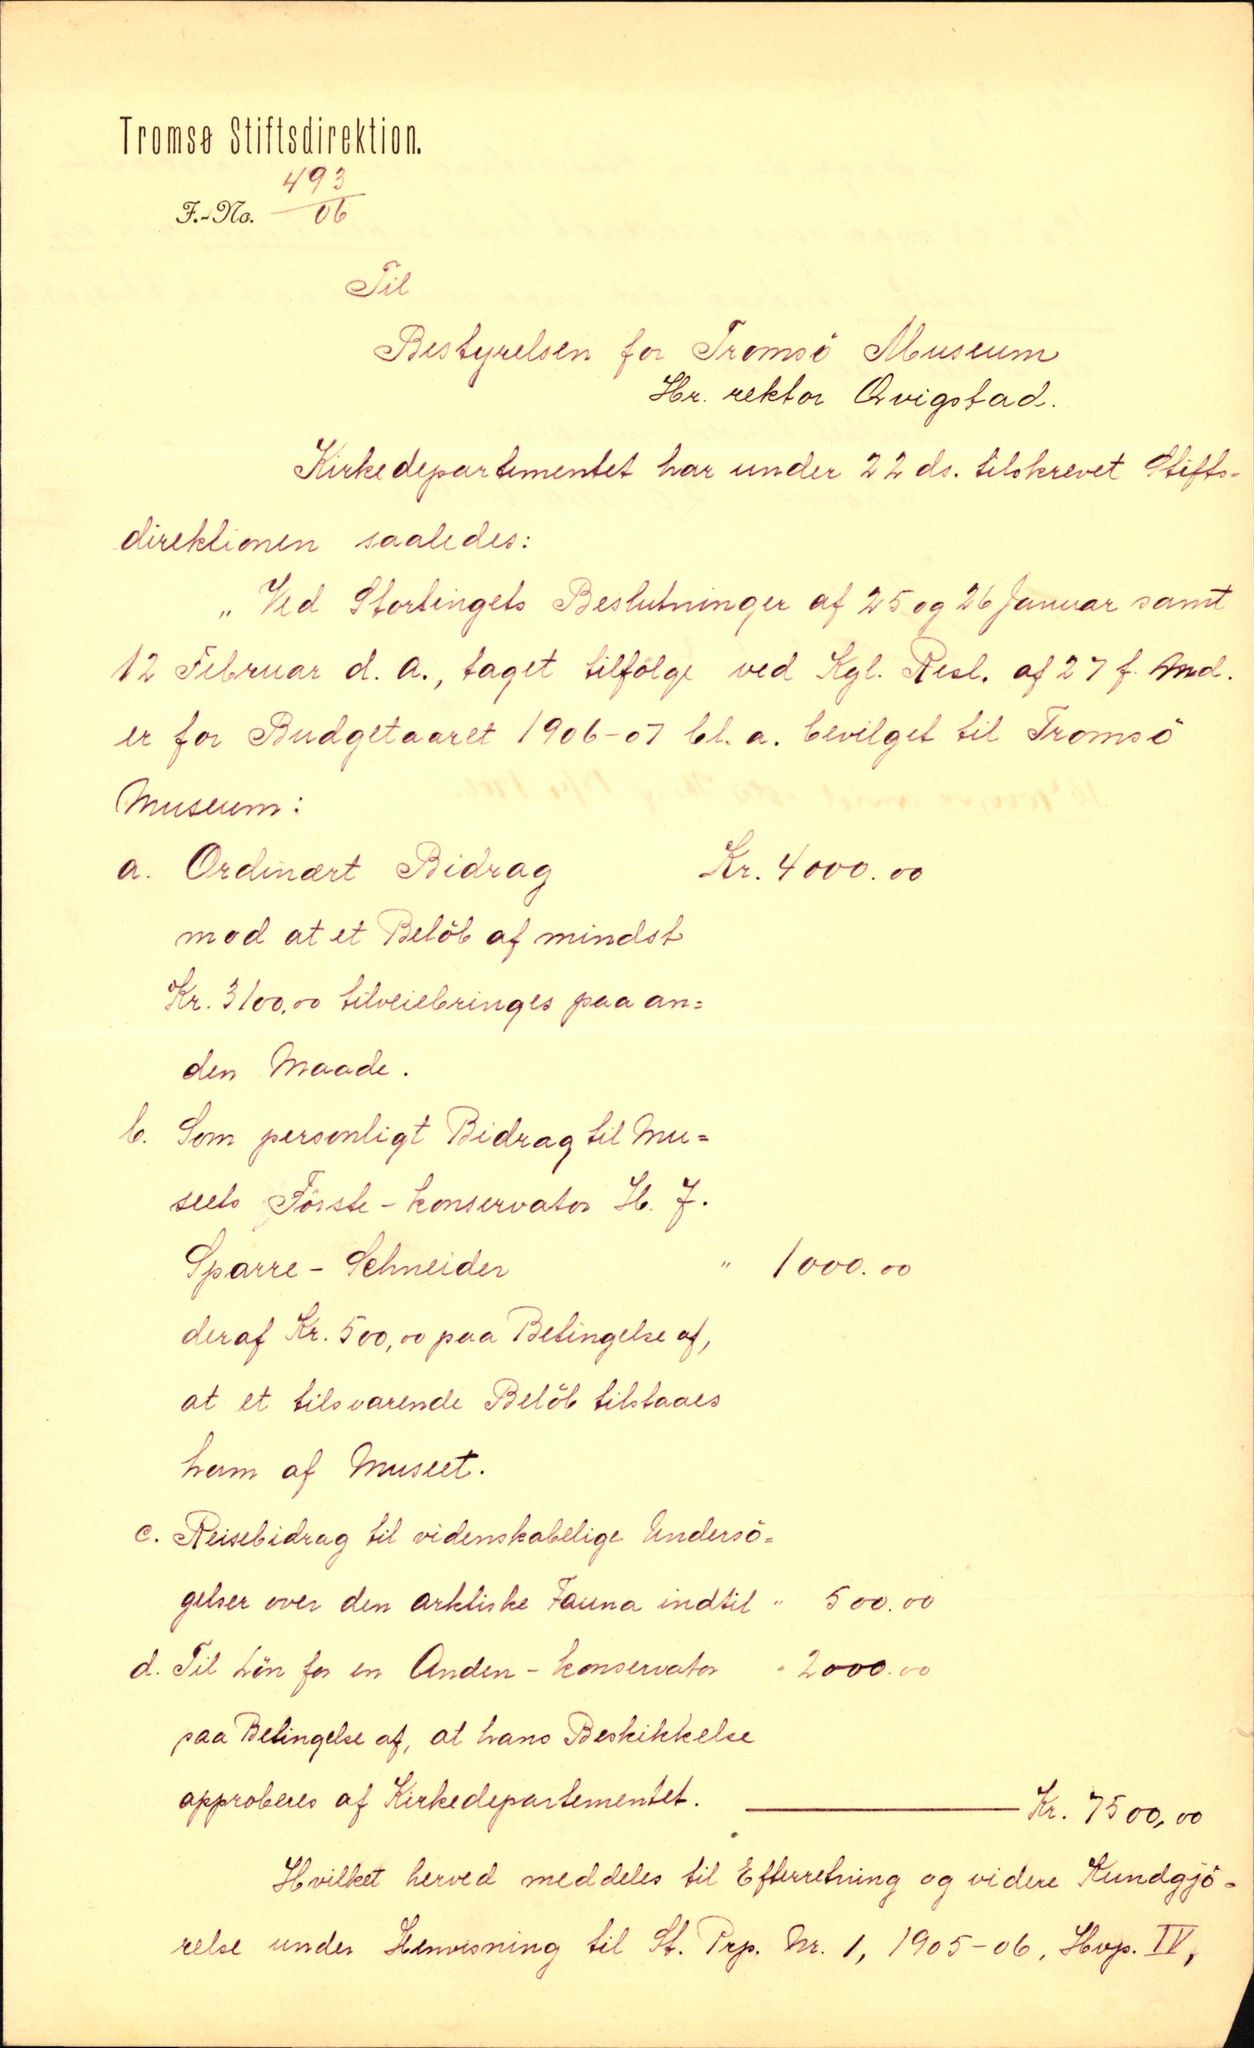 Tromsø Stiftsdirektion.
493
F.-No. 06
Til
Bestyrelsen for Tromsö Museum
Hr. rektor Qvigstad.
Kirkedepartementet har under 22 ds. tilskrevet Stifts-
direktionen saaledes:
„Ved Stortingets Beslutninger af 25 og 26 Januar samt
12 Februar d. A., taget tilfölge ved Kgl. Resl. af 27 f. Md.
er for Budgetaaret 1906-07 bl. a. bevilget til Tromsö
Museum:
a. Ordinært Bidrag Kr. 4000.00
mod at et Belöb af mindst
Kr. 3100,00 tilveiebringes paa an=
den Maade.
b. Som personligt Bidrag til Mu=
seets Förste-konservator H. J.
Sparre-Schneider " 1000.00
deraf Kr. 500,00 paa Betingelse af,
at et tilsvarende Belöb tilstaaes
ham af Museet.
c. Reisebidrag til videnskabelige Undersö=
gelser over den arktiske Fauna indtil " 500.00
d. Til Lön for en Anden-konservator " 2000.00
paa Betingelse af, at hans Beskikkelse
approberes af Kirkedepartementet. Kr. 7500,00
Hvilket herved meddeles til Efterretning og videre Kundgjö-
relse under Henvisning til St. Prp. Nr. 1, 1905-06, Hvp. IV,